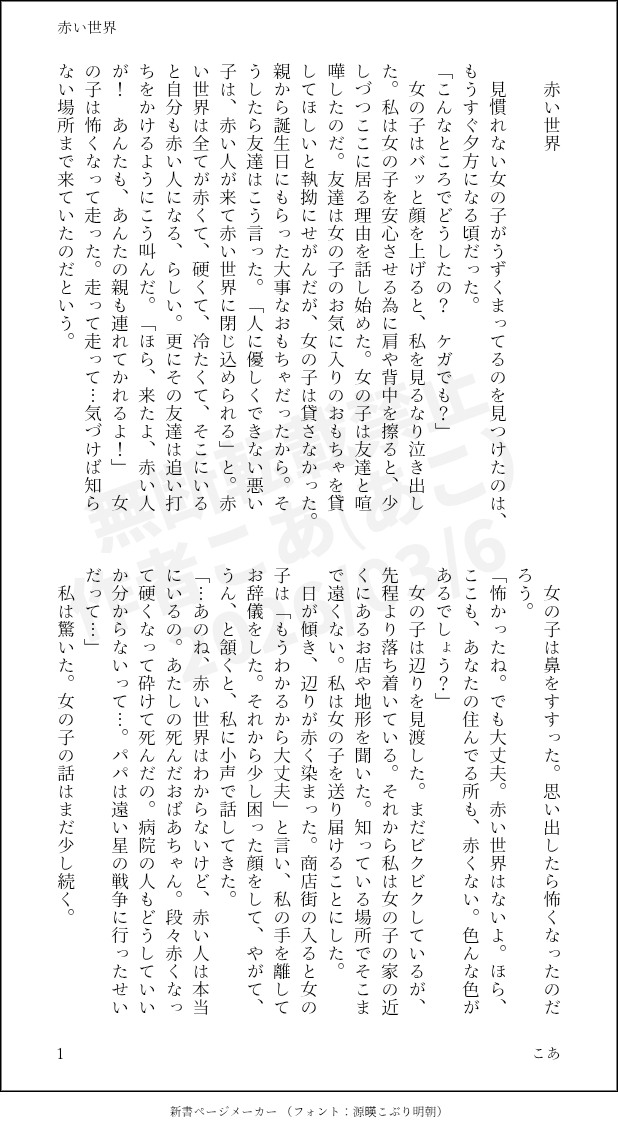 赤い世界
赤い世界
　見慣れない女の子がうずくまってるのを見つけたのは、
もうすぐ夕方になる頃だった。
「こんなところでどうしたの？　ケガでも？」
　女の子はバッと顔を上げると、私を見るなり泣き出し
た。私は女の子を安心させる為に肩や背中を擦ると、少
しづつここに居る理由を話し始めた。女の子は友達と喧
嘩したのだ。友達は女の子のお気に入りのおもちゃを貸
してほしいと執拗にせがんだが、女の子は貸さなかった。
親から誕生日にもらった大事なおもちゃだったから。そ
うしたら友達はこう言った。「人に優しくできない悪い
子は、赤い人が来て赤い世界に閉じ込められる」と。赤
い世界は全てが赤くて、硬くて、冷たくて、そこにいる
と自分も赤い人になる、らしい。更にその友達は追い打
ちをかけるようにこう叫んだ。「ほら、来たよ、赤い人
が！　あんたも、あんたの親も連れてかれるよ！」　女
の子は怖くなって走った。走って走って…気づけば知ら
ない場所まで来ていたのだという。
　女の子は鼻をすすった。思い出したら怖くなったのだ
ろう。
「怖かったね。でも大丈夫。赤い世界はないよ。ほら、
ここも、あなたの住んでる所も、赤くない。色んな色が
あるでしょう？」
　女の子は辺りを見渡した。まだビクビクしているが、
先程より落ち着いている。それから私は女の子の家の近
くにあるお店や地形を聞いた。知っている場所でそこま
で遠くない。私は女の子を送り届けることにした。
　日が傾き、辺りが赤く染まった。商店街の入ると女の
子は「もうわかるから大丈夫」と言い、私の手を離して
お辞儀をした。それから少し困った顔をして、やがて、
うん、と頷くと、私に小声で話してきた。
「…あのね、赤い世界はわからないけど、赤い人は本当
にいるの。あたしの死んだおばあちゃん。段々赤くなっ
て硬くなって砕けて死んだの。病院の人もどうしていい
か分からないって…。パパは遠い星の戦争に行ったせい
だって…」
　私は驚いた。女の子の話はまだ少し続く。
無断転載禁止
作者こあ(あこ)
2026/03/6
1
こあ
新書ページメーカー（フォント：源暎こぶり明朝）